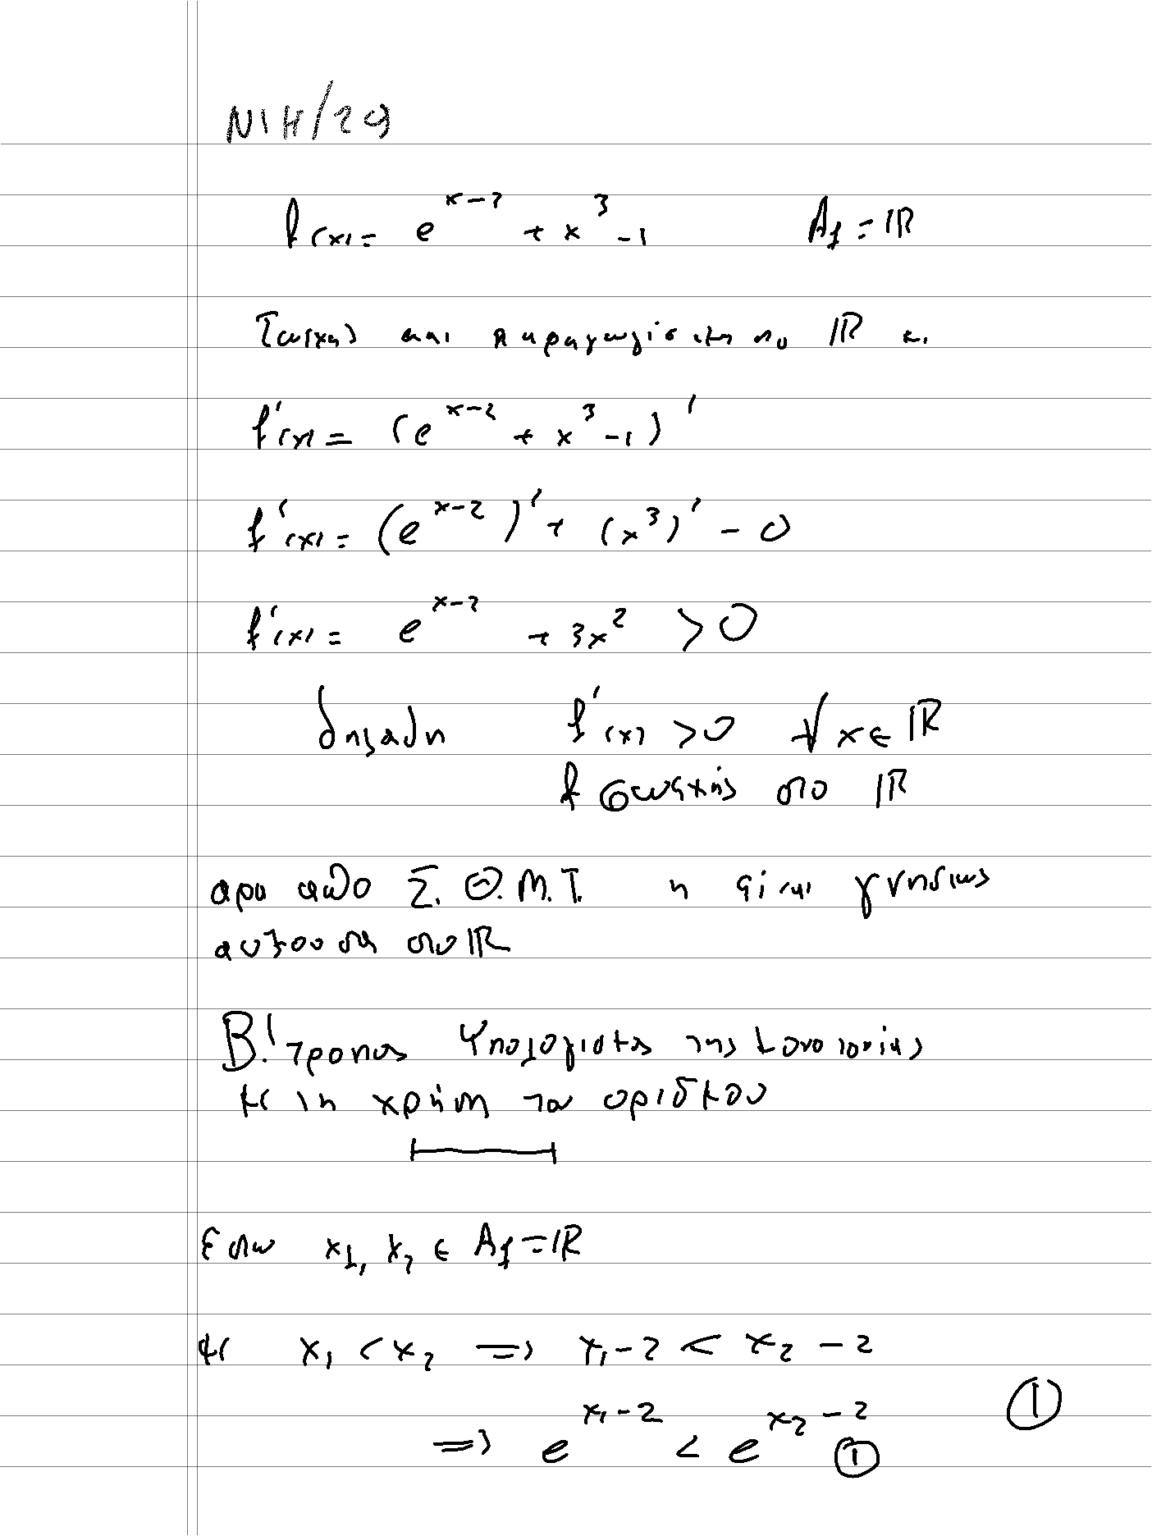 NIH/29
f(x) = e^{x-2} + x^3 - 1 A_f = ℝ
Συνεχής και παραγωγίσιμη στο ℝ με
f'(x) = (e^{x-2} + x^3 - 1)'
f'(x) = (e^{x-2})' + (x^3)' - 0
f'(x) = e^{x-2} + 3x^2 > 0
δηλαδη f'(x) > 0 ∀ x ∈ ℝ
f συνεχής στο ℝ
αρα απο Σ.Θ.Μ.Τ. η είναι γνησιως
αυξουσα στο ℝ
Β! τροπος Υπολογιστος της μονοτονίας
με τη χρήση του ορισμου
Εστω x_1, x_2 ∈ A_f = ℝ
με x_1 < x_2 ⇒ x_1 - 2 < x_2 - 2
①
⇒ e^{x_1 - 2} < e^{x_2 - 2} ①